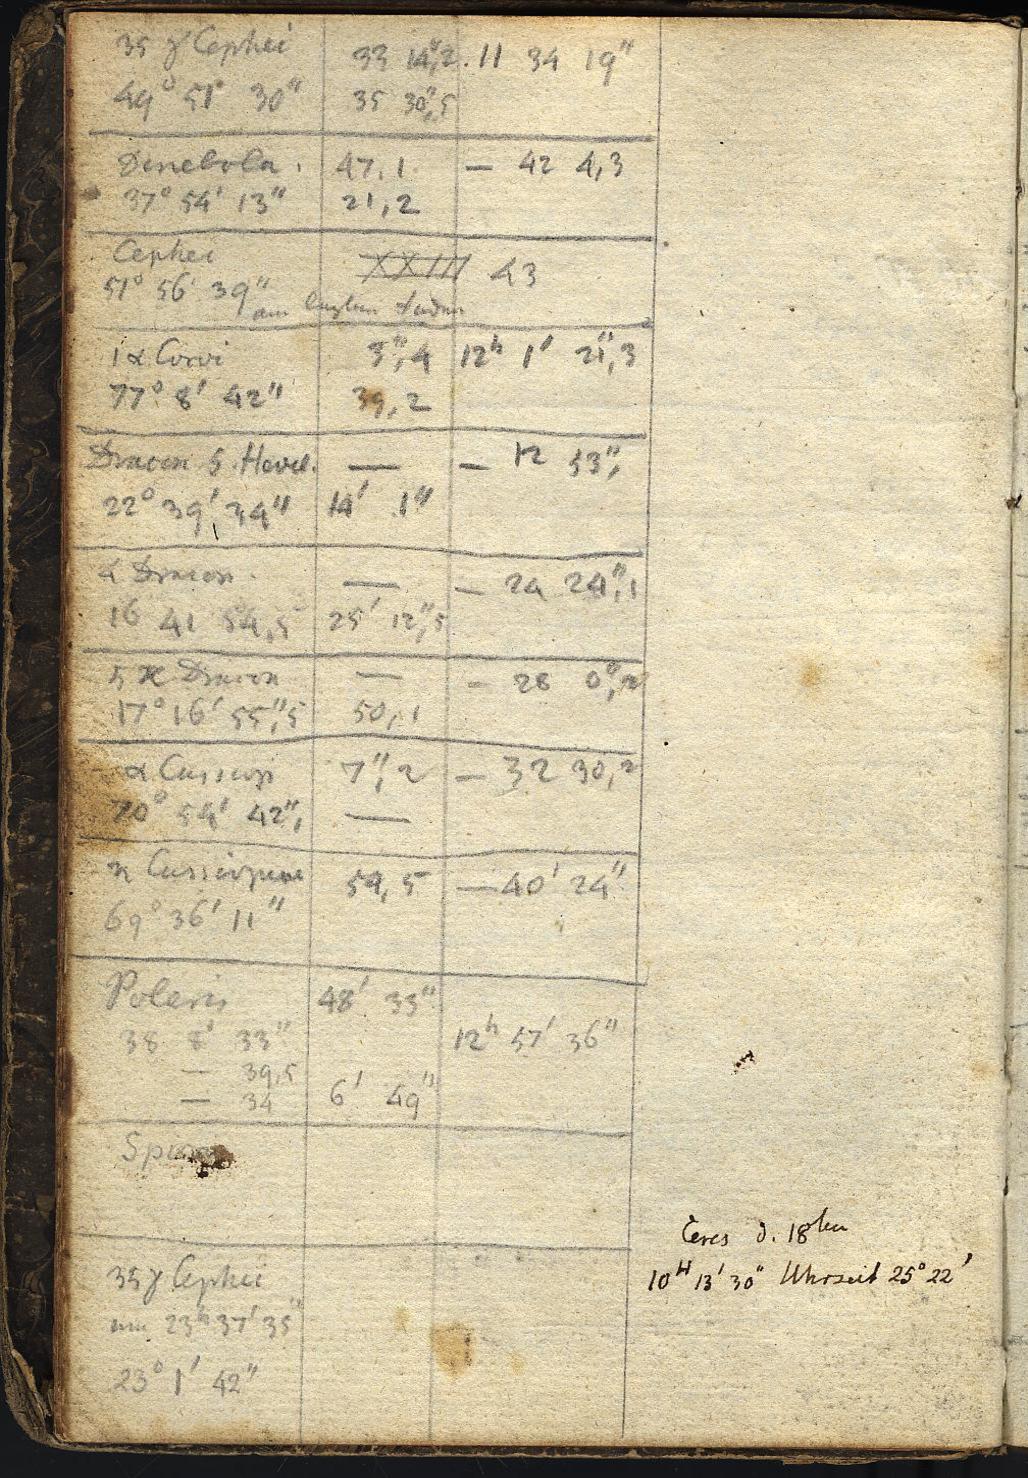 35 γ Cephei 33 14",2. 11 34 19"
49° 51' 30" 35 30",5
Denebola. 47,1. — 42 4,3
37° 54' 13" 21,2
Cephei 43
51° 56' 39"
am Faden
1 α Corvi 3",4 12h 1' 21",3
77° 8' 42" 39,2
Dracon 5 Hevel. — — 12 53",
22° 39' 34" 14' 1"
α Dracon. — — 24 24",1
16 41 54,5 25' 12",5
5 κ Dracon — — 28 0",2
17° 16' 55",5 50,1
α Cassiop 7",2 — 32 30,2
70° 54' 42", —
η Cassiopeiae 59,5 — 40' 24"
69° 36' 11"
Polaris 48' 33"
38 8' 33" 12h 57' 36"
— 39,5
— 34 6' 49"
Spica
Ceres d. 18ten
35 γ Cephei 10H 13' 30" Uhrzeit 25° 22'
um 23h 37' 35"
23° 1' 42"